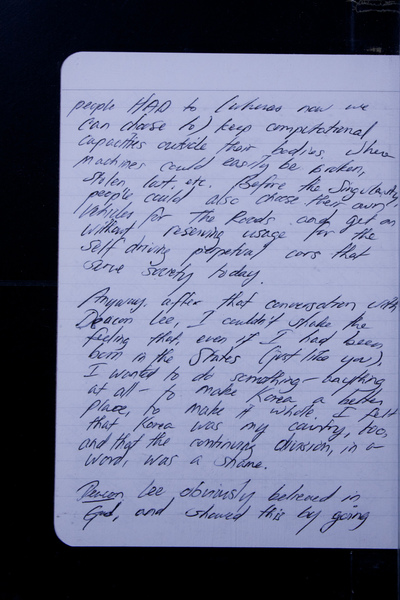 people HAD to (whereas now we
can choose to) keep computational
capacities outside their bodies, where
machines could easily be broken,
stolen, lost, etc. Before the Singularity
people could also choose their own
vehicles for The Roads and get on
without reserving usage for the
self driving perpetual cars that
serve society today.
Anyway, after that conversation with
Deacon Lee, I couldn't shake the
feeling that, even if I had been
born in the States (just like you),
I wanted to do something - anything
at all - to make Korea a better
place, to make it whole. I felt
that Korea was my country, too,
and that the continuing division, in a
word, was a shame.
Deacon Lee obviously believed in
God, and showed this by going